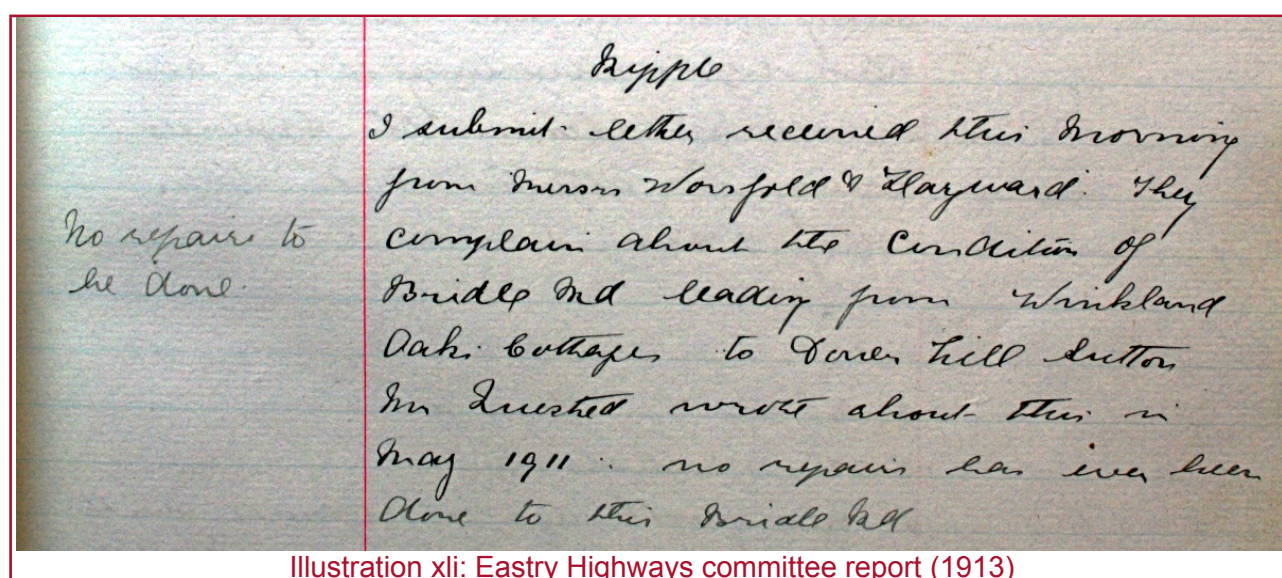 Ripple
I submit letter received this morning
from Messrs Worsfold & Hayward. They
complain about the Condition of
Bridle Rd leading from Winkland
Oaks Cottages to Dover Hill Sutton
Mr Quested wrote about this in
May 1911. no repairs has ever been
done to this Bridle Rd
No repairs to
be done.
Illustration xli: Eastry Highways committee report (1913)